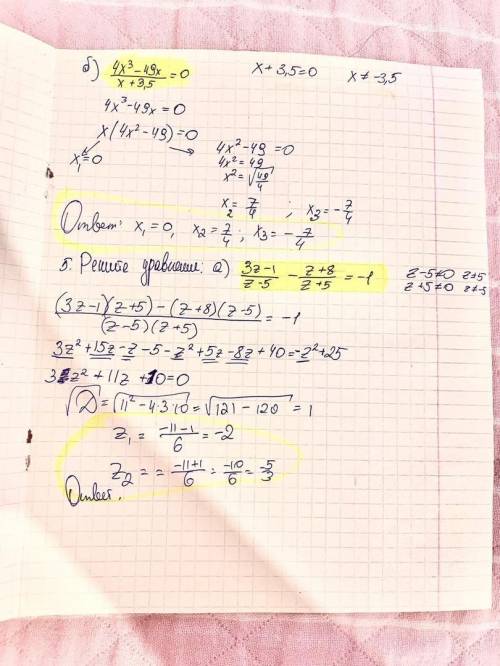 б) (4x³ - 49x)/(x + 3,5) = 0 x + 3,5 = 0 x ≠ -3,5
4x³ - 49x = 0
x(4x² - 49) = 0
x₁ = 0 4x² - 49 = 0
4x² = 49
x² = √(49/4)
x₂ = 7/4 ; x₃ = -7/4
Ответ: x₁ = 0, x₂ = 7/4 ; x₃ = -7/4
5. Решите уравнения: а) (3z-1)/(z-5) - (z+8)/(z+5) = -1 z-5≠0 z≠5
z+5≠0 z≠-5
((3z-1)(z+5) - (z+8)(z-5))/((z-5)(z+5)) = -1
3z² + 15z - z - 5 - z² + 5z - 8z + 40 = -z² + 25
3z² + 11z + 10 = 0
√D = √(11² - 4·3·10) = √(121 - 120) = 1
z₁ = (-11-1)/6 = -2
z₂ = = (-11+1)/6 = -10/6 = -5/3
Ответ.